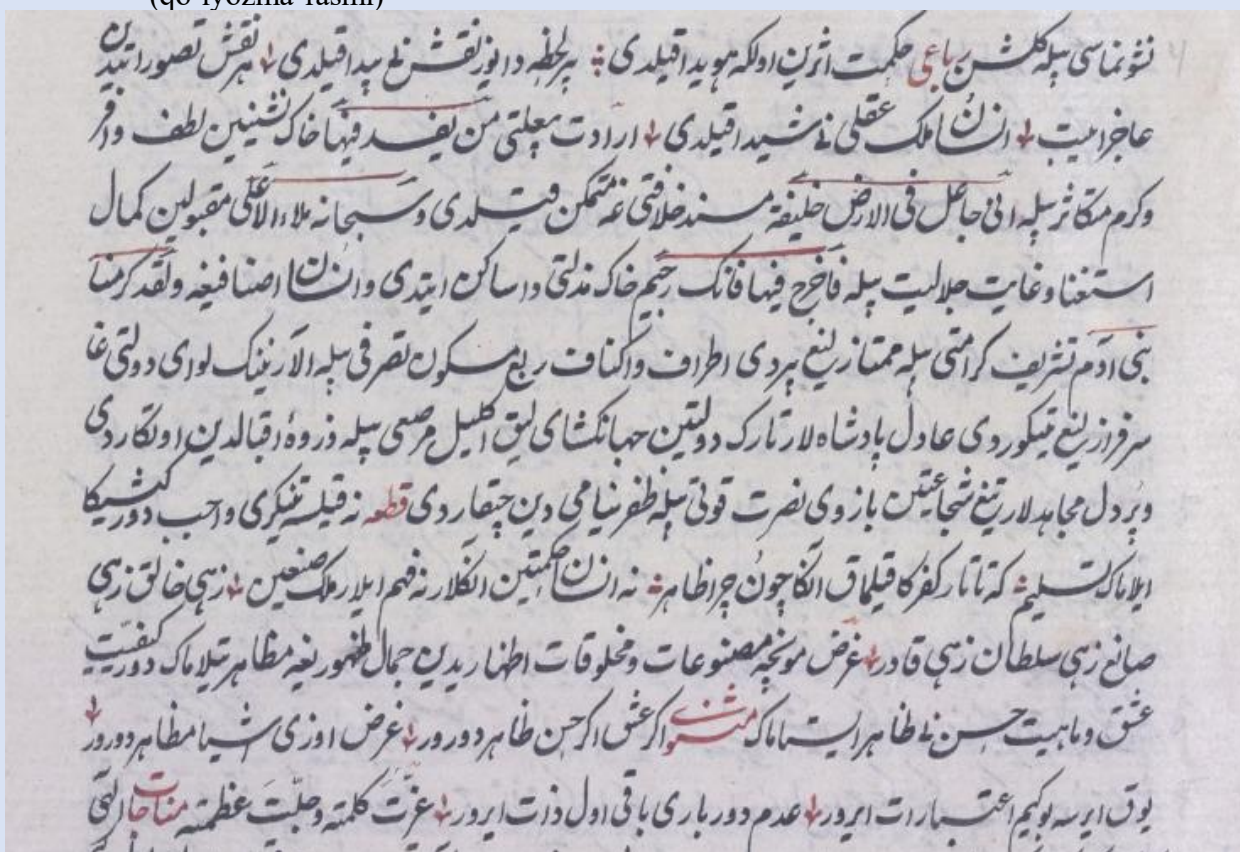 (qo‘lyozma rasmi)
نشو نماسی بیله گلشن رباعی حکمت اثرین اولکه هویدا قیلدی هر لحظه دا یوز نقش نی پیدا قیلدی هر نقش تصور ایتیدین
عاجز ایت انسان ملک عقلی نی شیدا قیلدی ارادت من یفسد فیها خاک نشنین لطف وافر
وکرم متکاثر بیله انی جاعل فی الارض خلیفة مسند خلافتی غه متمکن قیلدی و سبحانه ملاء الاعلی مقبولین کمال
استغنا و غایت جلالیت بیله فاخرج فیها فانک رجیم خاک مذلتی دا ساکن ایتدی و انسان اصنافیغه ولقد کرمنا
بنی آدم تشریف کرامتی بیله ممتازلیغ بیردی اطراف و اکناف ربع مسکون تصرفی بیله الارنینک لوای دولتی غا
سرفرازلیغ یتکوردی عادل پادشاه لار تارک دولتین جهانکشای لیق اکلیل مرصعی بیله ذروهٔ اقبالدین اوتکاردی
و پردل مجاهدلار تیغ شجاعتین بازوی نصرت قوتی بیله ظفر نیامی دین چیقاردی قطعه نه قیلسه تنکری واجب دور کیشیکا
ایلاماک تسلیم که تاتار کفرکا قیلماق انکا چون چرا ظاهر نه انسان حکمتین انکلار نه فهم ایلار ملک صنعین زهی خالق زهی
صانع زهی سلطان زهی قادر غرض مونچه مصنوعات و مخلوقات اظهاریدین جمال ظهوریغه مظاهر تیلاماک دور کیفیت
عشق و ماهیت حسن نی ظاهر ایستاماک مثنوی اکر عشق اکر حسن ظاهر دورور غرض اوزی اشیا مظاهر دورور
یوق ایرسه بو کیم اعتبارات ایرور عدم دور باری باقی اول ذات ایرور عزت کلمته و جلت عظمته مناجات الهی